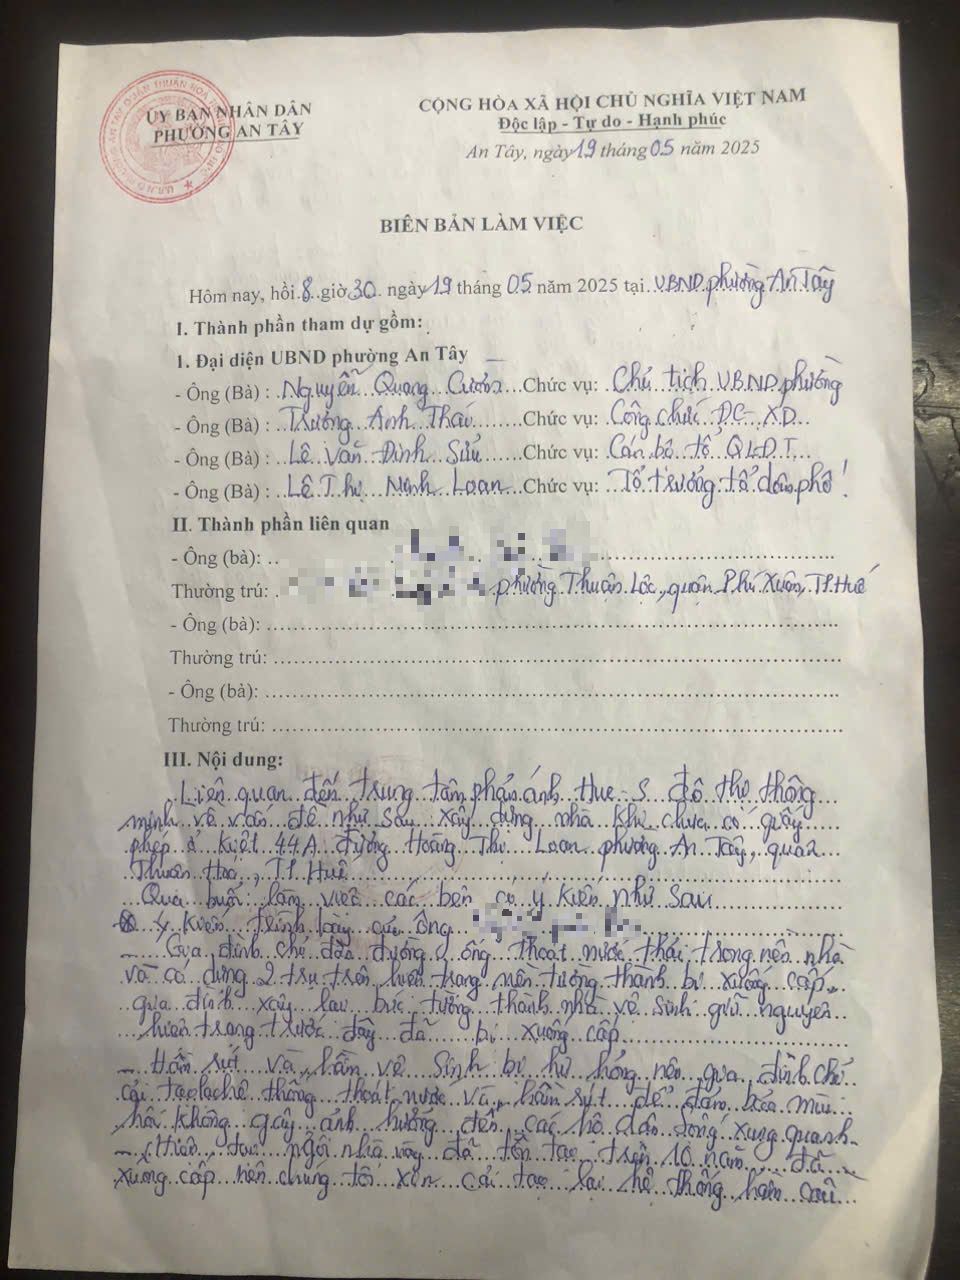 ỦY BAN NHÂN DÂN
PHƯỜNG AN TÂY
CỘNG HÒA XÃ HỘI CHỦ NGHĨA VIỆT NAM
Độc lập - Tự do - Hạnh phúc
An Tây, ngày 19 tháng 05 năm 2025
BIÊN BẢN LÀM VIỆC
Hôm nay, hồi 8 giờ 30 ngày 19 tháng 05 năm 2025 tại UBND phường An Tây
I. Thành phần tham dự gồm:
1. Đại diện UBND phường An Tây
- Ông (Bà) : Nguyễn Quang Cường Chức vụ: Chủ tịch UBND phường
- Ông (Bà) : Trương Anh Thái Chức vụ: Công chức ĐC-XD
- Ông (Bà) : Lê Văn Đình Sửu Chức vụ: Cán bộ tổ QLĐT
- Ông (Bà) : Lê Thị Minh Loan Chức vụ: Tổ trưởng tổ dân phố 1
II. Thành phần liên quan
- Ông (bà):
Thường trú: phường Thuận Lộc, quận Phú Xuân, TP Huế
- Ông (bà):
Thường trú:
- Ông (bà):
Thường trú:
III. Nội dung:
Liên quan đến trung tâm phản ánh Hue-S đô thị thông
minh về vấn đề như sau xây dựng nhà khi chưa có giấy
phép ở kiệt 44A đường Hoàng Thị Loan phường An Tây, quận
Thuận Hoá, TP Huế
Qua buổi làm việc các bên có ý kiến như sau
Ý kiến trình bày của ông
- Gia đình chỉ đào đường ống thoát nước thải trong nền nhà
và có dựng 2 trụ trên hiện trạng nền tường thành bị xuống cấp,
gia đình xây lại bức tường thành nhà vệ sinh giữ nguyên
hiện trạng trước đây đã bị xuống cấp
- Hầm rút và hầm vệ sinh bị hư hỏng nên gia đình chỉ
cải tạo lại hệ thống thoát nước và hầm rút để đảm bảo mùi
hôi không gây ảnh hưởng đến các hộ dân sống xung quanh
- Hiện tại ngôi nhà này đã tồn tại trên 10 năm đã
xuống cấp nên chúng tôi xin cải tạo lại hệ thống hầm cầu